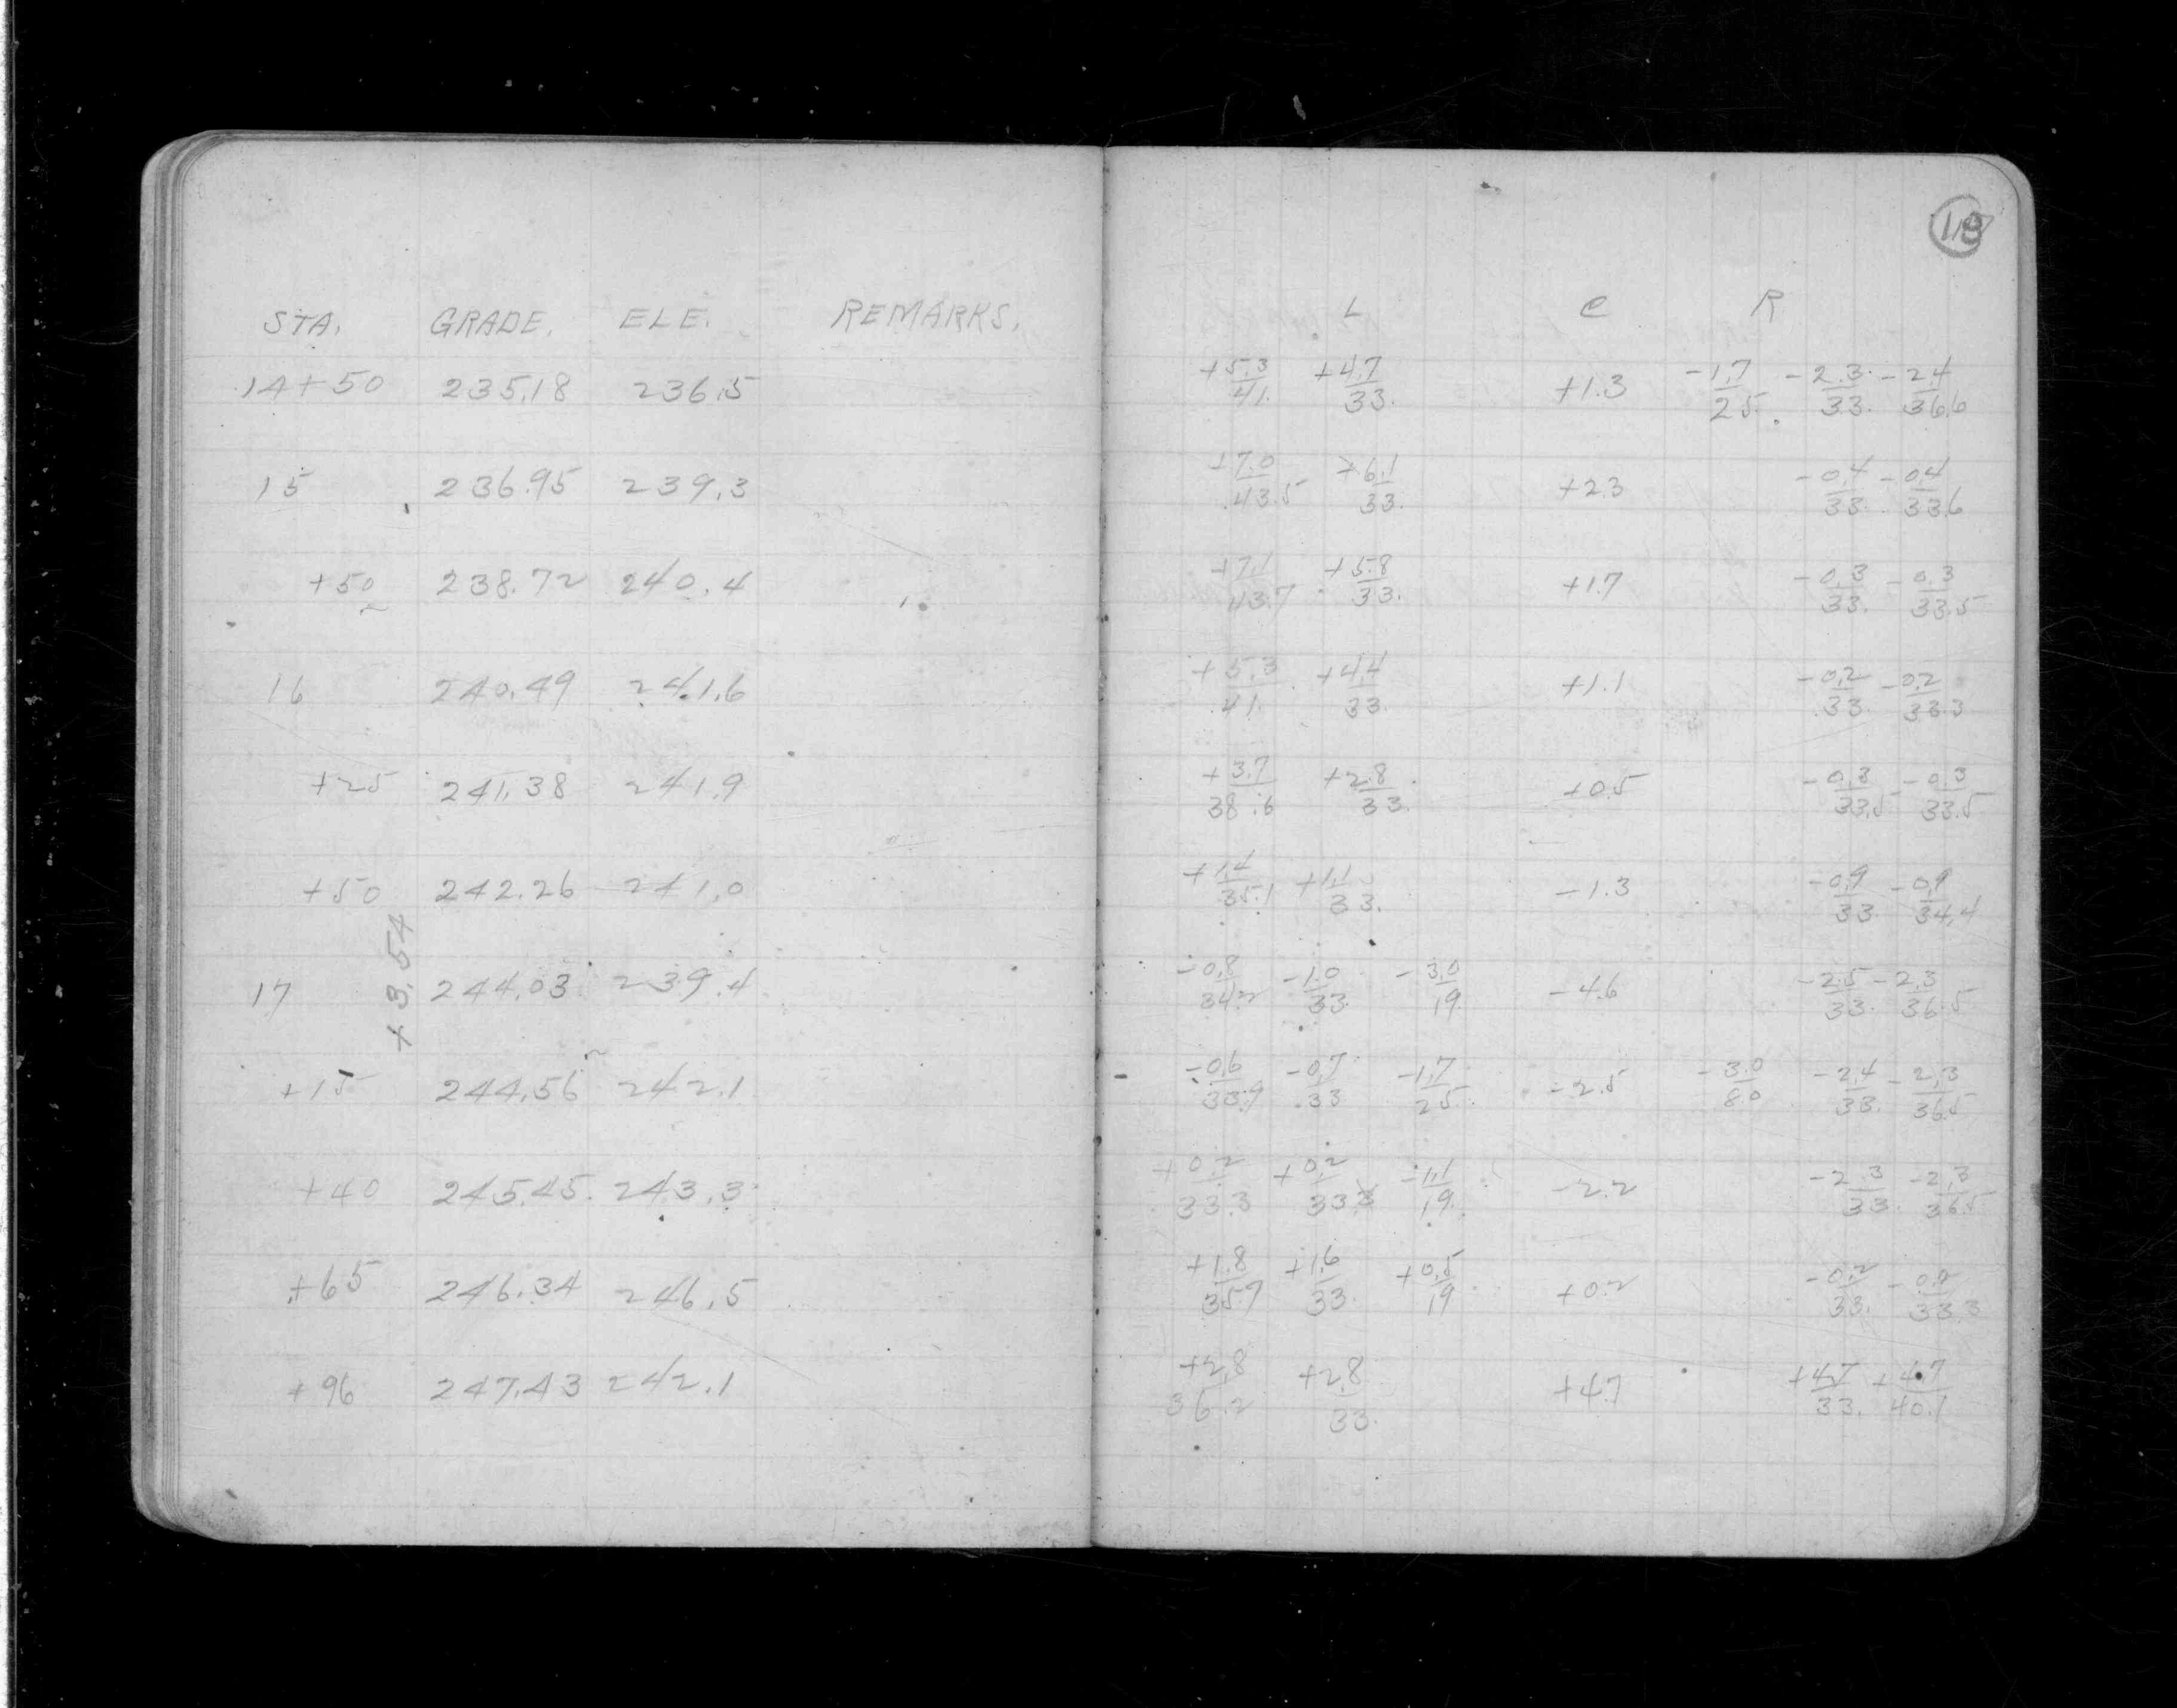 18
STA. GRADE. ELE. REMARKS. L C R
14+50 235.18 236.5 +5.3/41. +4.7/33. +1.3 -1.7/25. -2.3/33. -2.4/36.6
15 236.95 239.3 +7.0/43.5 +6.1/33. +2.3 -0.4/33. -0.4/33.6
+50 238.72 240.4 +7.1/43.7 +5.8/33. +1.7 -0.3/33. -0.3/33.5
16 240.49 241.6 +5.3/41. +4.4/33. +1.1 -0.2/33. -0.2/33.3
+25 241.38 241.9 +3.7/38.6 +2.8/33. +0.5 -0.3/33.5 -0.3/33.5
+50 242.26 241.0 +1.4/35.1 +1.1/33. -1.3 -0.9/33. -0.9/34.4
+3.54
17 244.03 239.4 -0.8/34.2 -1.0/33. -3.0/19. -4.6 -2.5/33. -2.3/36.5
+15 244.56 242.1 -0.6/33.9 -0.7/33 -1.7/25. -2.5 -3.0/8.0 -2.4/33. -2.3/36.5
+40 245.45 243.3 +0.2/33.3 +0.2/33 -1.1/19. -2.2 -2.3/33. -2.3/36.5
+65 246.34 246.5 +1.8/35.7 +1.6/33. +0.5/19 +0.2 -0.2/33. -0.2/33.3
+96 247.43 242.1 +2.8/36.2 +2.8/33. +4.7 +4.7/33. +4.7/40.1